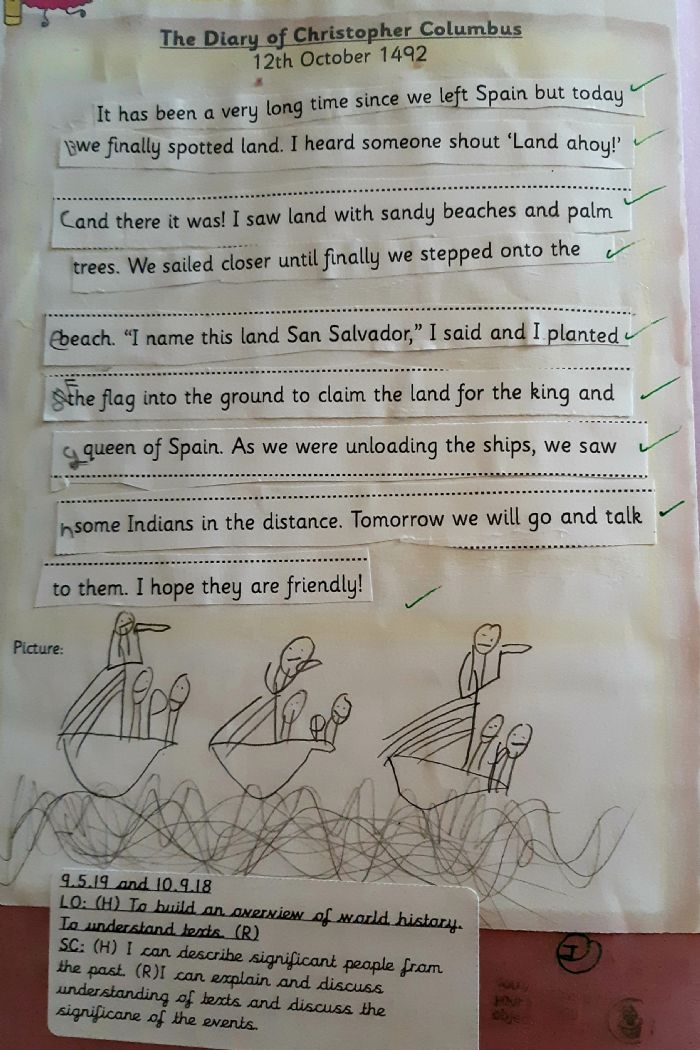 The Diary of Christopher Columbus
12th October 1492
It has been a very long time since we left Spain but today
we finally spotted land. I heard someone shout ‘Land ahoy!’
and there it was! I saw land with sandy beaches and palm
trees. We sailed closer until finally we stepped onto the
beach. “I name this land San Salvador,” I said and I planted
the flag into the ground to claim the land for the king and
queen of Spain. As we were unloading the ships, we saw
some Indians in the distance. Tomorrow we will go and talk
to them. I hope they are friendly!
Picture:
9.5.19 and 10.9.18
LO: (H) To build an overview of world history.
To understand texts. (R)
SC: (H) I can describe significant people from
the past. (R)I can explain and discuss
understanding of texts and discuss the
significane of the events.
I